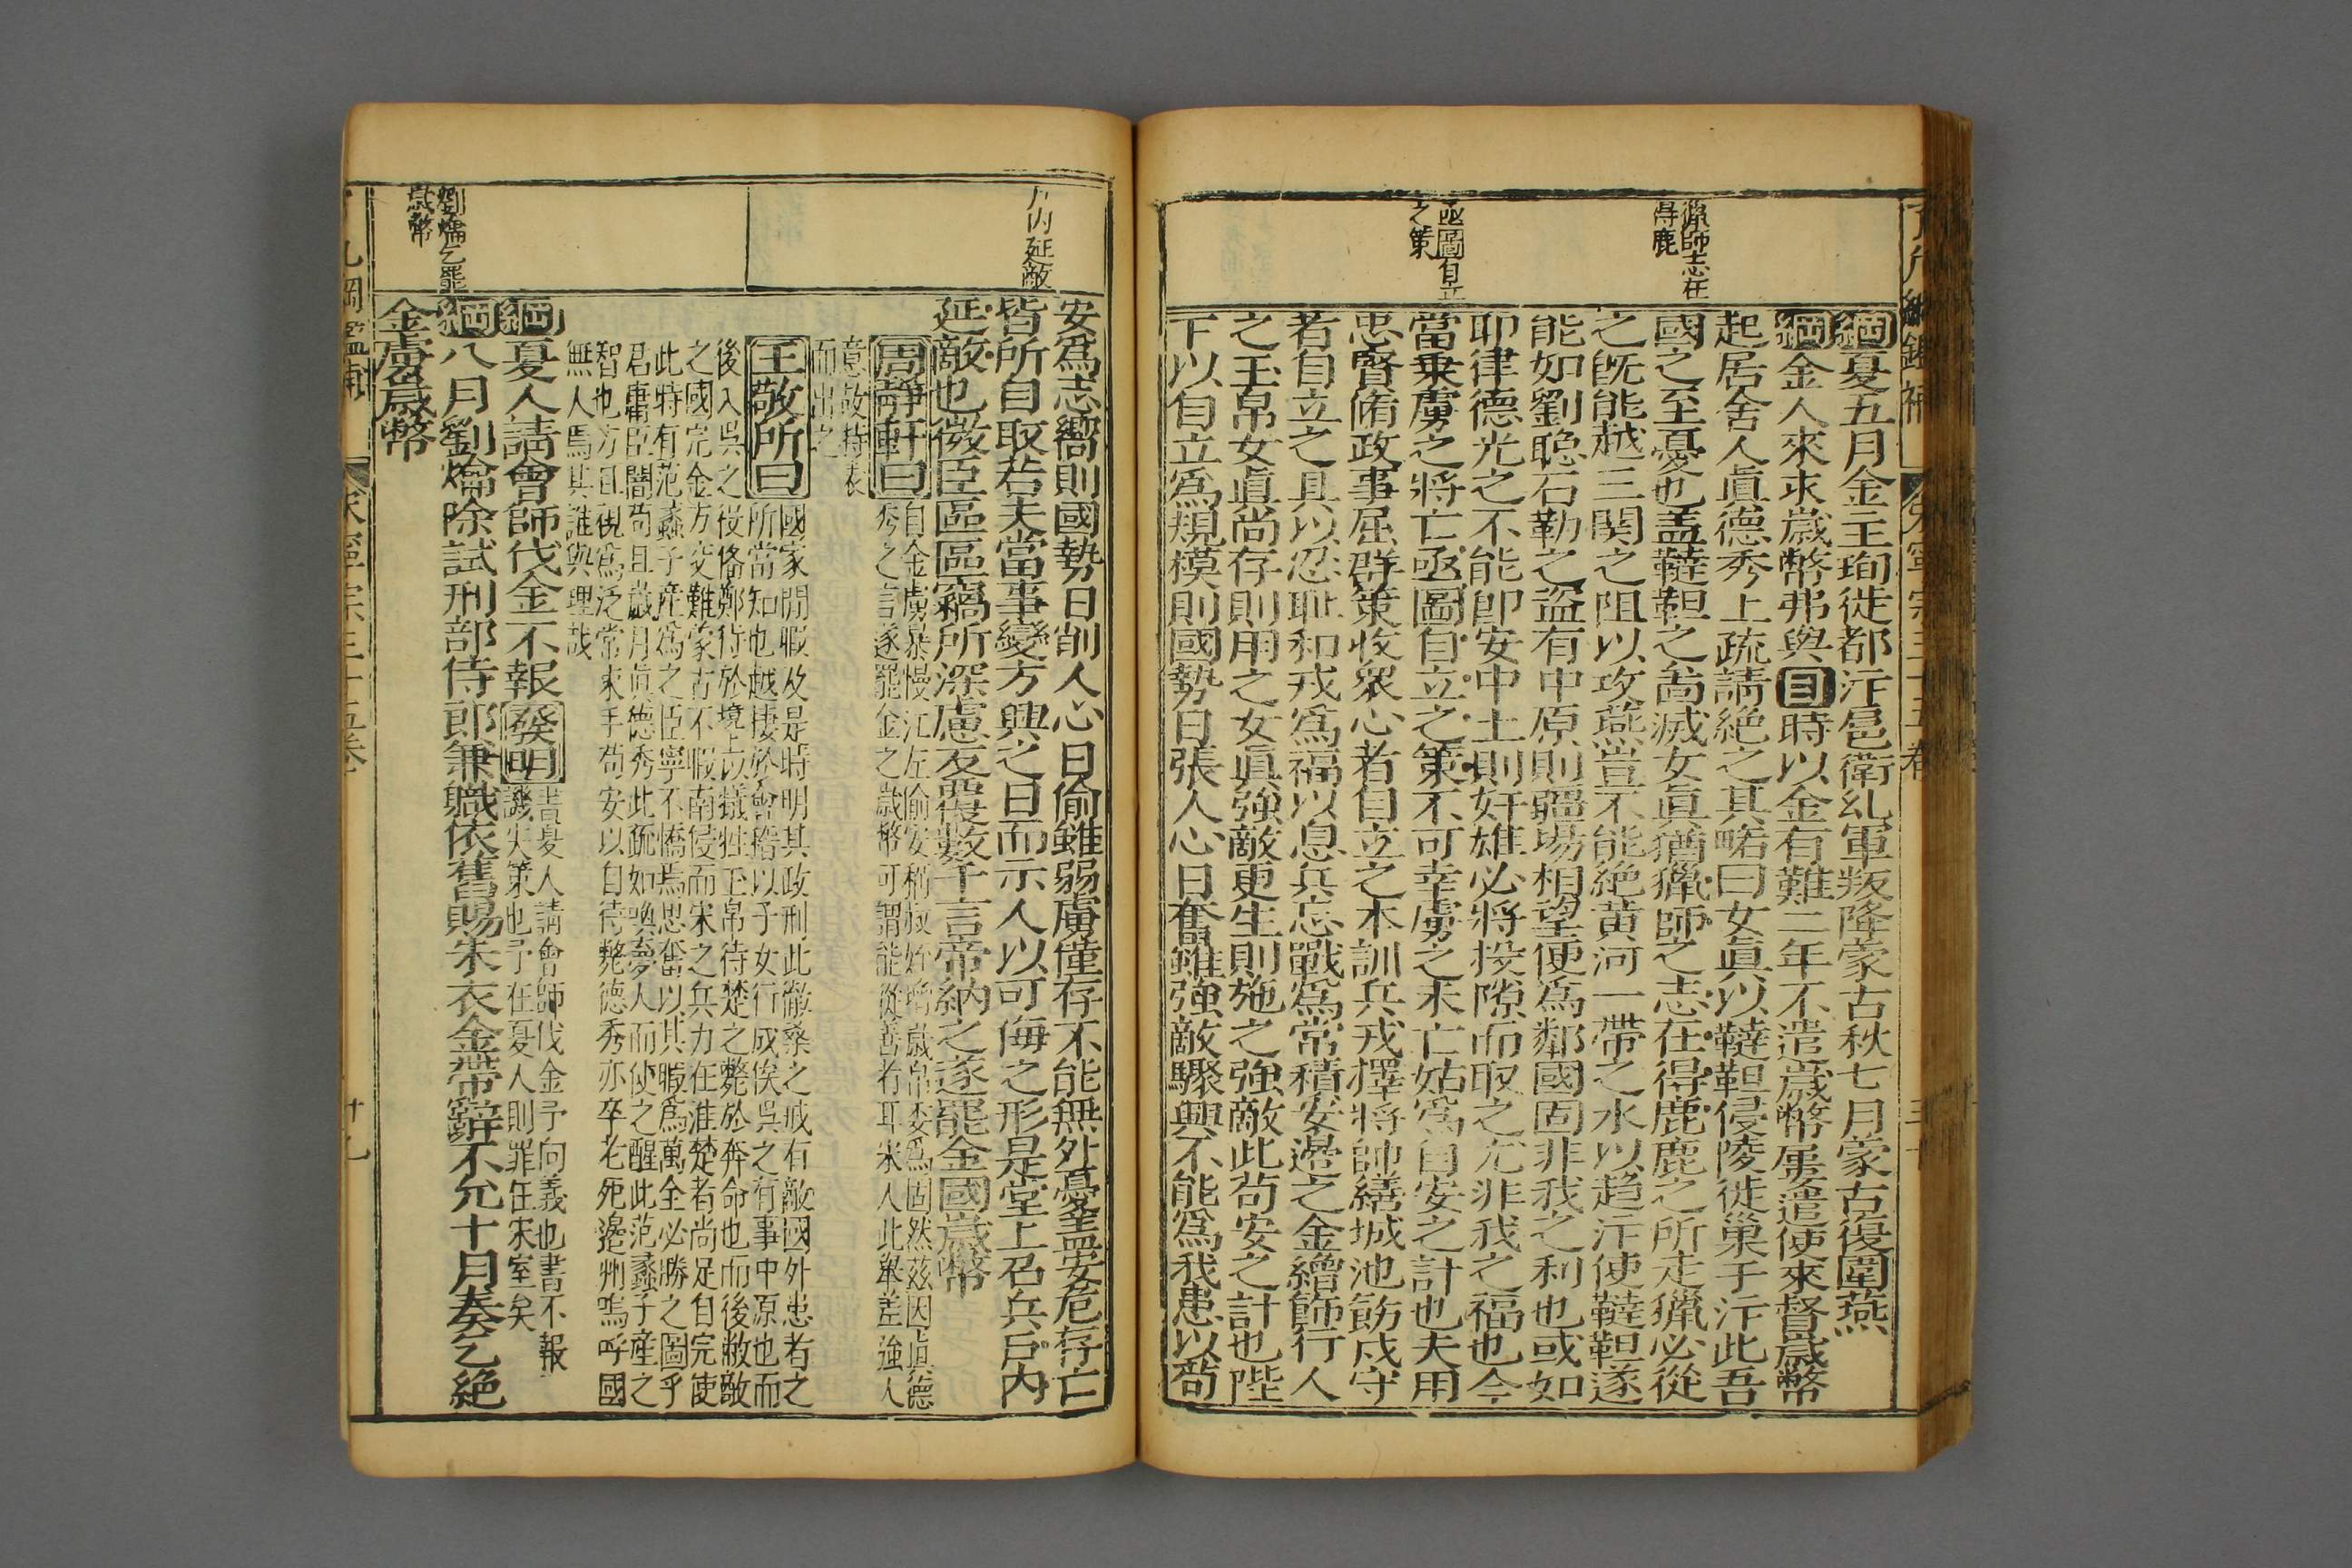 獵師志在
得鹿
亟圖自立
之策
綱夏五月金主珣徙都汴邑衛乣軍叛降蒙古秋七月蒙古復圍燕
綱金人來求歲幣弗與目時以金有難二年不遣歲幣屢遣使來督歲幣
起居舍人眞德秀上疏請絕之其略曰女眞以韃靼侵陵徙巢于汴此吾
國之至憂也盖韃靼之啚滅女眞猶獵師之志在得鹿鹿之所走獵必從
之旣能越三関之阻以攻燕豈不能絶黄河一帶之水以趋汴使韃靼遂
能如劉聦石勒之盜有中原則疆場相望便爲鄰國固非我之利也或如
耶律德光之不能卽安中土則奸雄必將投隙而取之尤非我之福也今
當乗虜之將亡亟圖自立之策不可幸虜之未亡姑爲自安之計也夫用
忠賢脩政事屈群策收衆心者自立之本訓兵戎擇將帥繕城池飭戍守
者自立之具以忍耻和戎爲福以息兵忘戰爲常積安邊之金繒飾行人
之玉帛女眞尚存則用之女眞強敵更生則施之強敵此苟安之計也陛
下以自立爲規模則國勢日張人心日奮雖強敵驟興不能爲我患以苟
戶内延敵
劉爚乞罷
歲幣
安爲志嚮則國勢日削人心日偷雖弱虜僅存不能無外憂盖安危存亡
皆所自取若夫當事變方興之日而示人以可侮之形是堂上召兵戶内
延敵也微臣區區竊所深慮反覆數千言帝納之遂罷金國歲幣
周靜軒曰自金虜暴慢江左偷安稱叔姪增歲帛委爲固然茲因眞德
秀之言遂罷金之歲幣可謂能從善者耳宋人此舉差強人
意故特表
而出之
王敬所曰國家閒暇及是時明其政刑此徹桑之戒有敵國外患者之
所當知也越棲於會稽以子女行成俟吳之有事中原也而
後入吳之役俻鄭伺於境上以犠牲玉帛待楚之斃於奔命也而後敝敵
之國完金方交難蒙古不暇南侵而宋之兵力在淮楚者尚足自完使
此特有范蠡子産爲之臣寧不憣焉思奮以其暇爲萬全必勝之圖乎
君庸臣闇苟且歲月眞德秀此疏如喚夢人而使之醒此范蠡子産之
智也方且視爲泛常束手苟安以自待斃德秀亦卒老死邊州嗚呼國
無人焉其誰與理哉
綱夏人請會師伐金不報發明書夏人請會師伐金予向義也書不報
譏失策也予在夏人則罪在宋室矣
綱八月劉爚除試刑部侍郎兼職依舊賜朱衣金帶辭不允十月奏乞絕
金虜歲幣